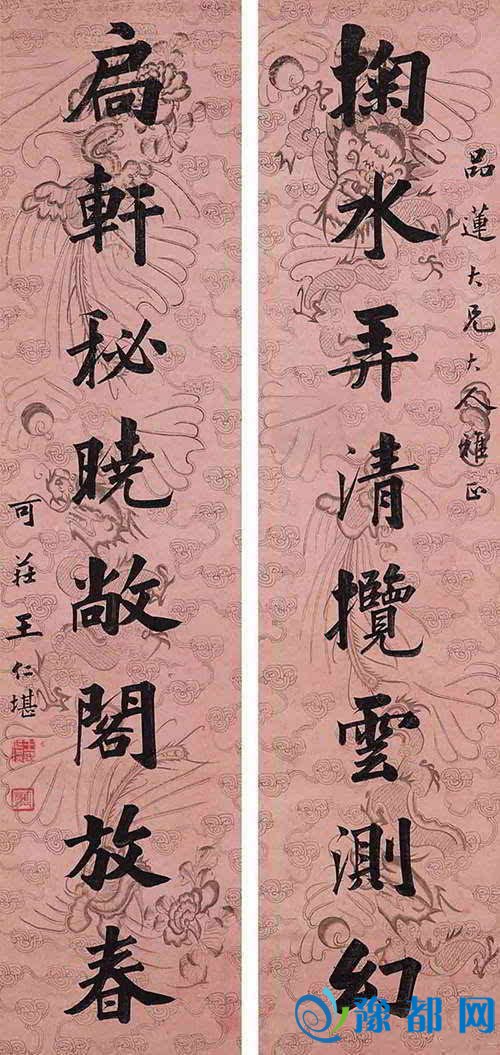 品蓮大兄大人雅正
掬水弄清攬雲測幻
扃軒秘曉敞閣放春
可莊王仁堪
豫都网